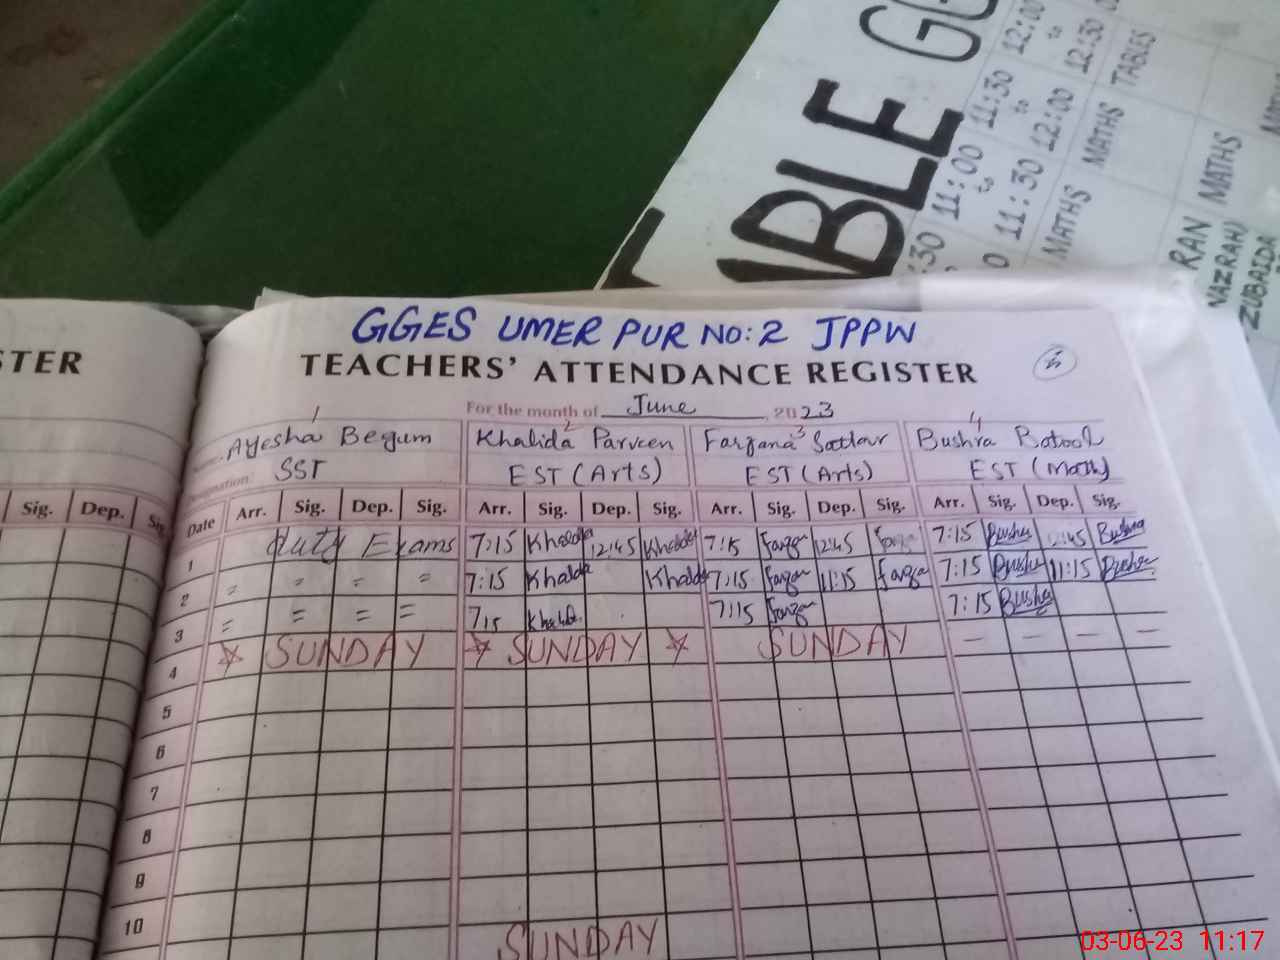 BLE GO
12:00
to
12:30
TABLES
11:30
to
12:00
MATHS
11:00
to
11:30
MATHS
:30
MATHS
RAN
NAZRAH)
ZUBAIDA
GGES UMER PUR NO:2 JPPW
STER TEACHERS' ATTENDANCE REGISTER
For the month of June 2023
1 2 3 4
Ayesha Begum Khalida Parveen Farzana Sattar Bushra Batool
Designation: SST EST (Arts) EST (Arts) EST (Math)
Sig. Dep. Sig. Date Arr. Sig. Dep. Sig. Arr. Sig. Dep. Sig. Arr. Sig. Dep. Sig. Arr. Sig. Dep. Sig.
1 duty Exams 7:15 Khalida 12:45 Khalida 7:15 Farzan 12:45 Farzan 7:15 Bushra 12:45 Bushra
2 = = = = 7:15 Khalida Khalida 7:15 Farzan 11:15 Farzan 7:15 Bushra 11:15 Bushra
3 = = = = 7:15 Khalid 7:15 Farzan 7:15 Bushra
4 SUNDAY SUNDAY SUNDAY — — — —
5
6
7
8
9
10 SUNDAY
03-06-23 11:17